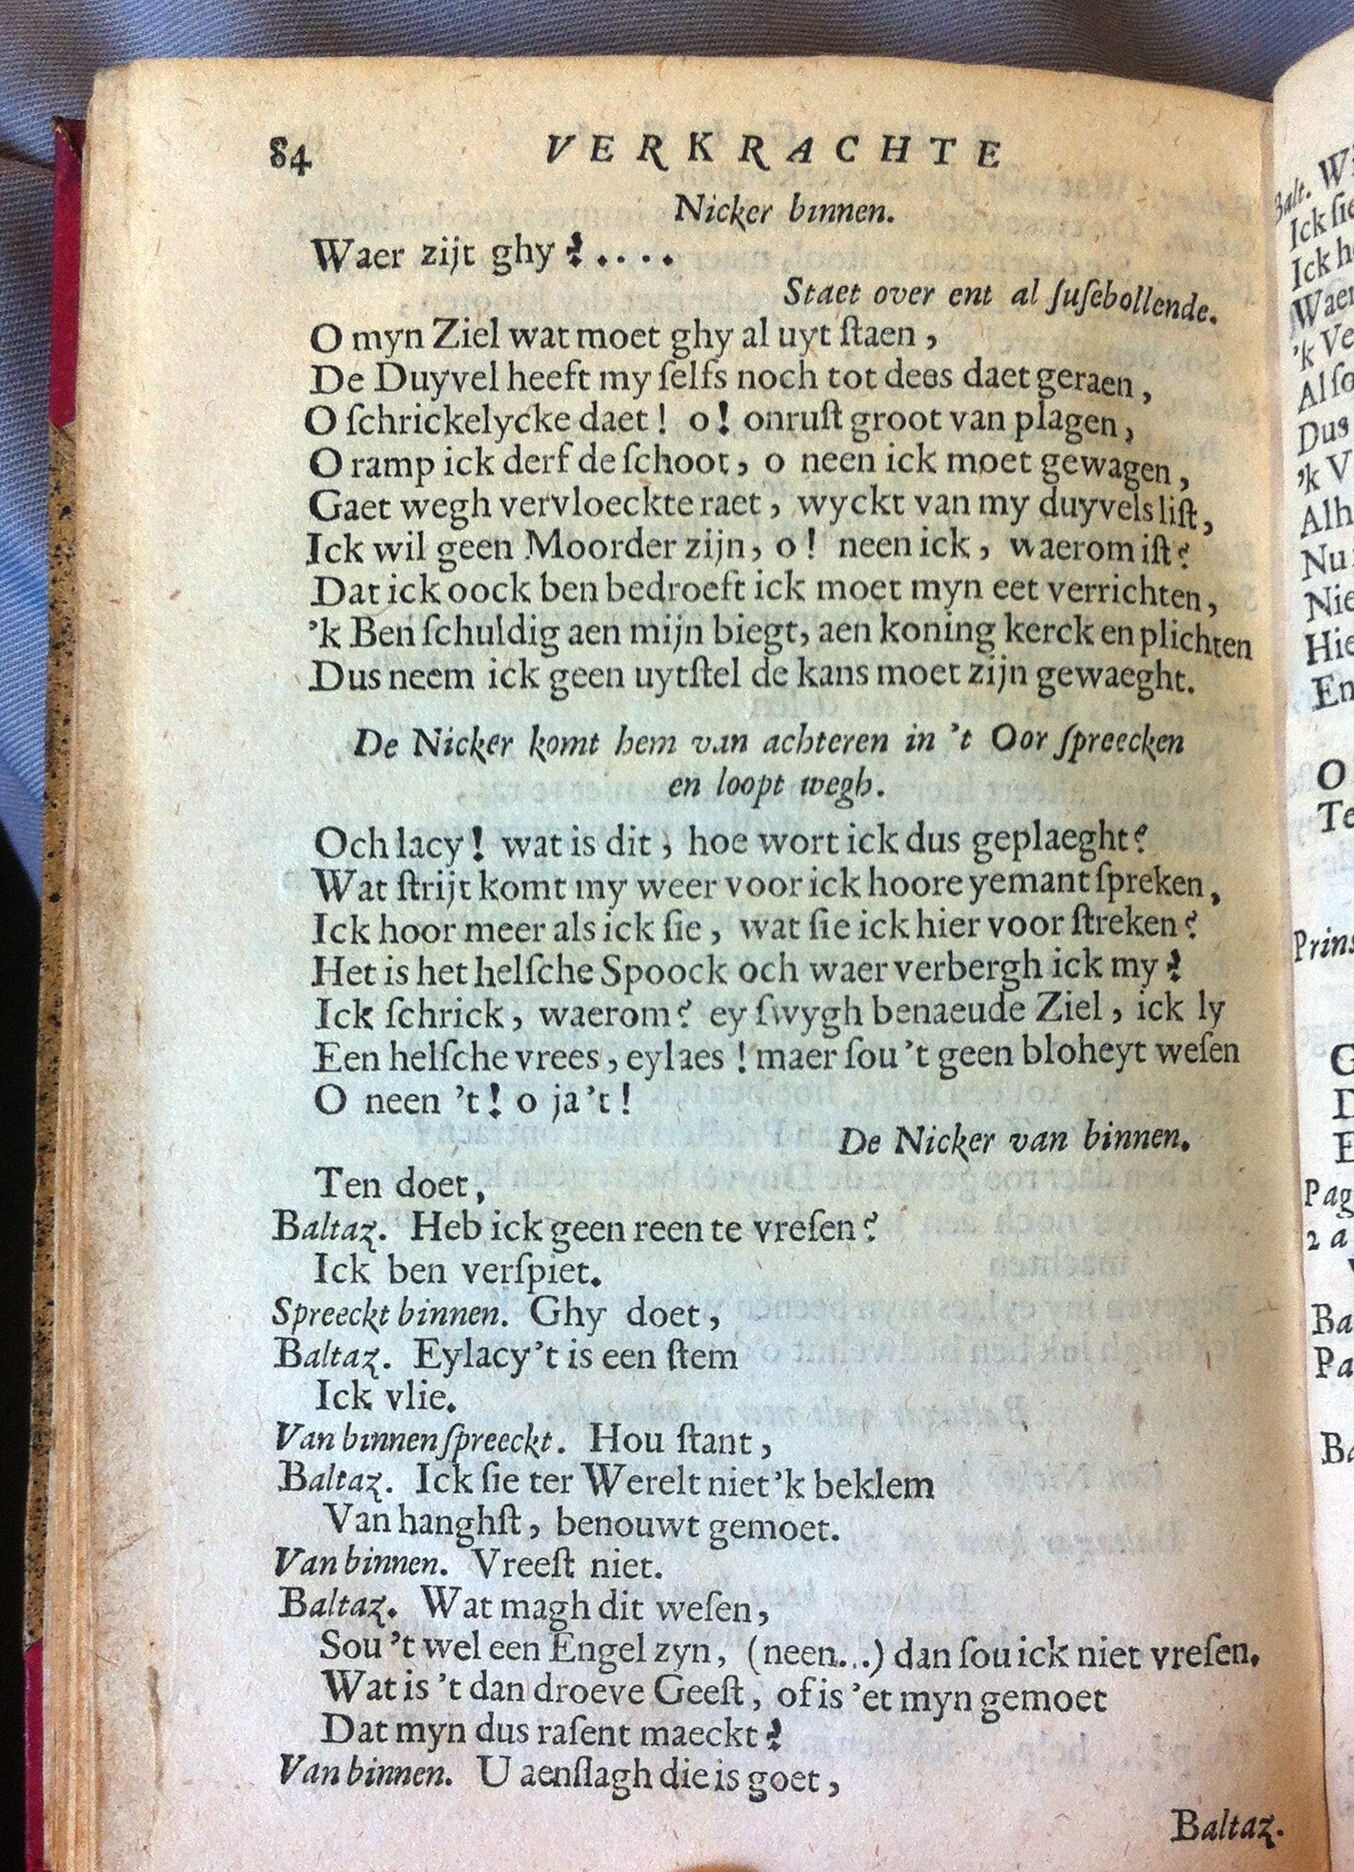 84 VERKRACHTE
Nicker binnen.
Waer zijt ghy?....
Staet over ent al ſuſebollende.
O myn Ziel wat moet ghy al uyt ſtaen,
De Duyvel heeft my ſelfs noch tot dees daet geraen,
O ſchrickelycke daet! o! onruſt groot van plagen,
O ramp ick derf de ſchoot, o neen ick moet gewagen,
Gaet wegh vervloeckte raet, wyckt van my duyvels liſt,
Ick wil geen Moorder zijn, o! neen ick, waerom iſt?
Dat ick oock ben bedroeft ick moet myn eet verrichten,
'k Ben ſchuldig aen mijn biegt, aen koning kerck en plichten
Dus neem ick geen uytſtel de kans moet zijn gewaeght.
De Nicker komt hem van achteren in 't Oor ſpreecken
en loopt wegh.
Och lacy! wat is dit, hoe wort ick dus geplaeght?
Wat ſtrijt komt my weer voor ick hoore yemant ſpreken,
Ick hoor meer als ick ſie, wat ſie ick hier voor ſtreken?
Het is het helſche Spoock och waer verbergh ick my?
Ick ſchrick, waerom? ey ſwygh benaeude Ziel, ick ly
Een helſche vrees, eylaes! maer ſou 't geen bloheyt weſen
O neen 't! o ja 't!
De Nicker van binnen.
Ten doet,
Baltaz. Heb ick geen reen te vreſen?
Ick ben verſpiet.
Spreeckt binnen. Ghy doet,
Baltaz. Eylacy 't is een ſtem
Ick vlie.
Van binnen ſpreeckt. Hou ſtant,
Baltaz. Ick ſie ter Werelt niet 'k beklem
Van hanghſt, benouwt gemoet.
Van binnen. Vreeſt niet.
Baltaz. Wat magh dit weſen,
Sou 't wel een Engel zyn, (neen...) dan ſou ick niet vreſen.
Wat is 't dan droeve Geeſt, of is 'et myn gemoet
Dat myn dus raſent maeckt?
Van binnen. U aenſlagh die is goet,
Baltaz.
Balt.
Ick
Ick
'k
Dus
'k V
Nu
En
O
Te
Prins
G
D
E
Pag
Ba
Pa